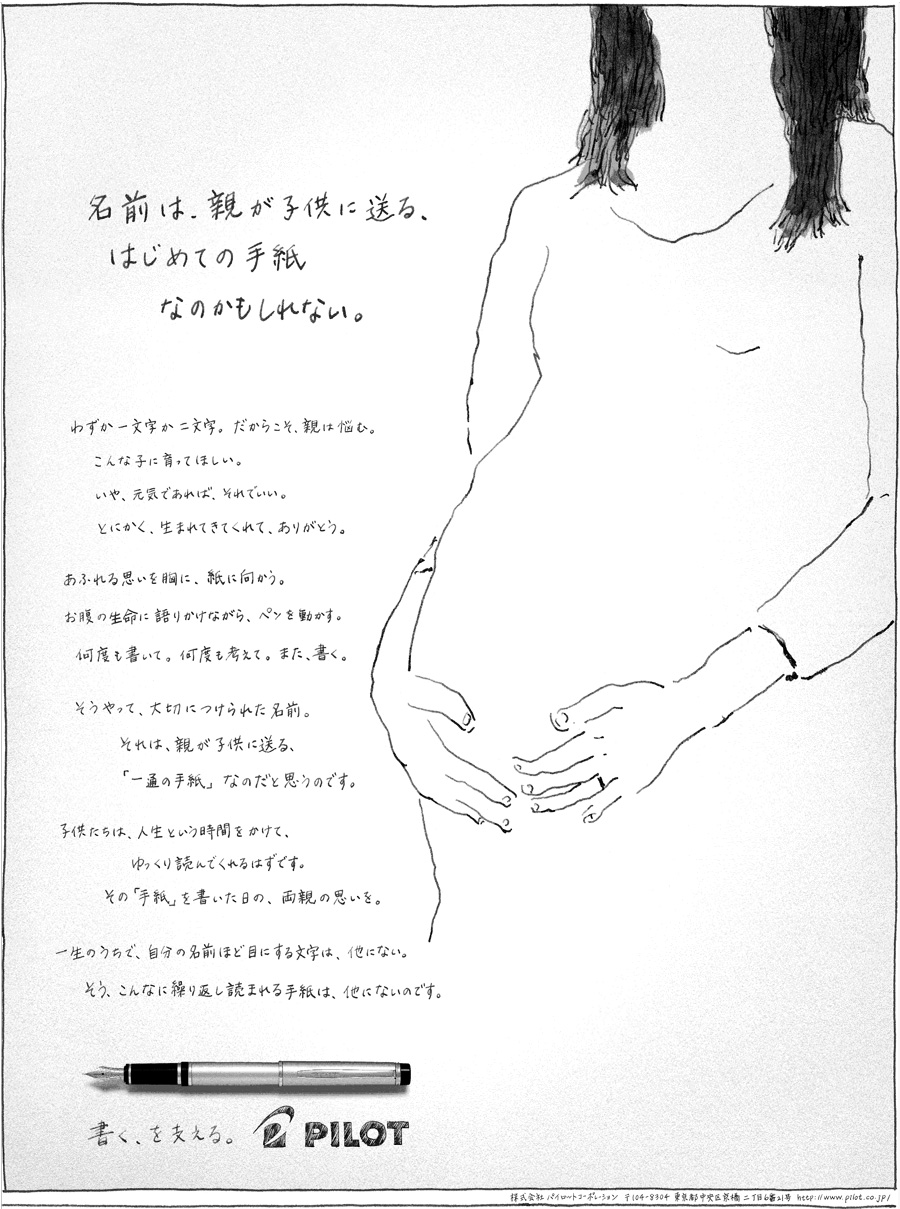 名前は、親が子供に送る、
はじめての手紙
なのかもしれない。
わずか一文字か二文字。だからこそ、親は悩む。
こんな子に育ってほしい。
いや、元気であれば、それでいい。
とにかく、生まれてきてくれて、ありがとう。
あふれる思いを胸に、紙に向かう。
お腹の生命に語りかけながら、ペンを動かす。
何度も書いて。何度も考えて。また、書く。
そうやって、大切につけられた名前。
それは、親が子供に送る、
「一通の手紙」なのだと思うのです。
子供たちは、人生という時間をかけて、
ゆっくり読んでくれるはずです。
その「手紙」を書いた日の、両親の思いを。
一生のうちで、自分の名前ほど目にする文字は、他にない。
そう、こんなに繰り返し読まれる手紙は、他にないのです。
書く、を支える。 PILOT
株式会社パイロットコーポレーション 〒104-8304 東京都中央区京橋二丁目6番21号 http://www.pilot.co.jp/